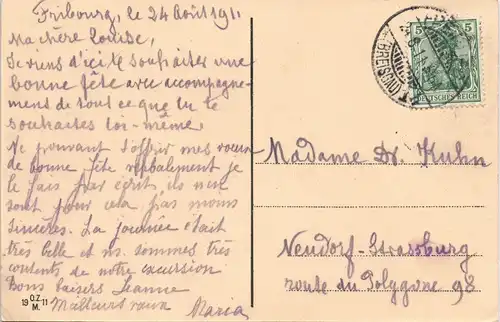 Fribourg, le 24 Août 1911
Ma chère Louise,
Je viens d'ici te souhaiter une
bonne fête avec accompagne-
ment de tout ce que tu te
souhaites toi-même.
Ne pouvant t'offrir mes vœux
de bonne fête verbalement je
le fais par écrit, ils n'en
sont pour cela pas moins
sincères. La journée était
très belle et ns. sommes très
contents de notre excursion
Bons baisers Jeanne
Meilleurs vœux
Maria
19 O.Z. 11
M.
5 5
DEUTSCHES REICH
(BREISGAU)
Madame Dr. Kuhn
Neudorf-Strassburg
route du Polygone 98